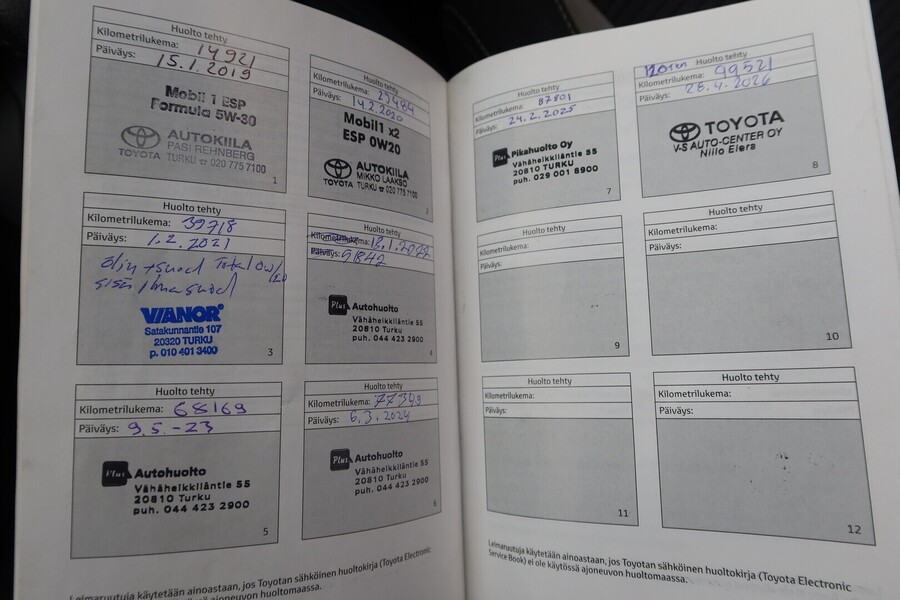 Huolto tehty
Kilometrilukema: 14921
Päiväys: 15.1.2019
Mobil 1 ESP
Formula 5W-30
TOYOTA
AUTOKIILA
PASI REHNBERG
TURKU ☎ 020 775 7100
1
Huolto tehty
Kilometrilukema:
Päiväys: 14.2.2020
Mobil1 x2
ESP 0W20
TOYOTA
AUTOKIILA
MIKKO LAAKSO
TURKU ☎ 020 775 7100
2
Huolto tehty
Kilometrilukema: 39718
Päiväys: 1.2.2021
VIANOR
Satakunnantie 107
20320 TURKU
p. 010 401 3400
3
Huolto tehty
Kilometrilukema: 12.1.2022
Päiväys: 51842
Plus Autohuolto
Vähäheikkiläntie 55
20810 Turku
puh. 044 423 2900
4
Huolto tehty
Kilometrilukema: 68169
Päiväys: 9.5.-23
Plus Autohuolto
Vähäheikkiläntie 55
20810 Turku
puh. 044 423 2900
5
Huolto tehty
Kilometrilukema: 77349
Päiväys: 6.3.2024
Plus Autohuolto
Vähäheikkiläntie 55
20810 Turku
puh. 044 423 2900
6
Leimaruutuja käytetään ainoastaan, jos Toyotan sähköinen huoltokirja (Toyota Electronic
ajoneuvon huoltomaassa.
Huolto tehty
Kilometrilukema: 87801
Päiväys: 24.2.2025
Plus Pikahuolto Oy
Vähäheikkiläntie 55
20810 TURKU
puh. 029 001 8900
7
Huolto tehty
99521
Päiväys: 28.4.2026
TOYOTA
V-S AUTO-CENTER OY
Niilo Elers
8
Huolto tehty
Kilometrilukema:
Päiväys:
9
Huolto tehty
Kilometrilukema:
Päiväys:
10
Huolto tehty
Kilometrilukema:
Päiväys:
11
Huolto tehty
Kilometrilukema:
Päiväys:
12
Leimaruutuja käytetään ainoastaan, jos Toyotan sähköinen huoltokirja (Toyota Electronic
Service Book) ei ole käytössä ajoneuvon huoltomaassa.